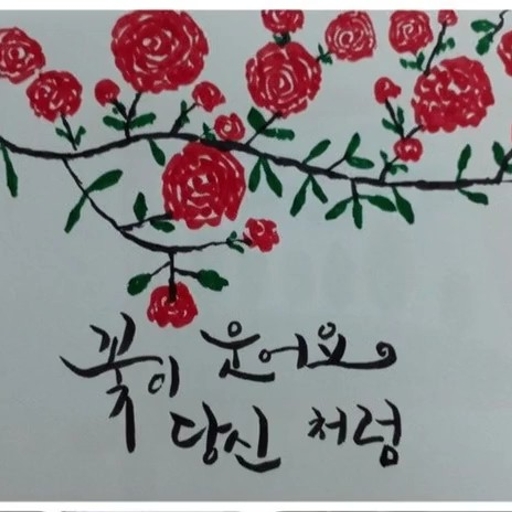 꽃이 웃어요
당신 처럼